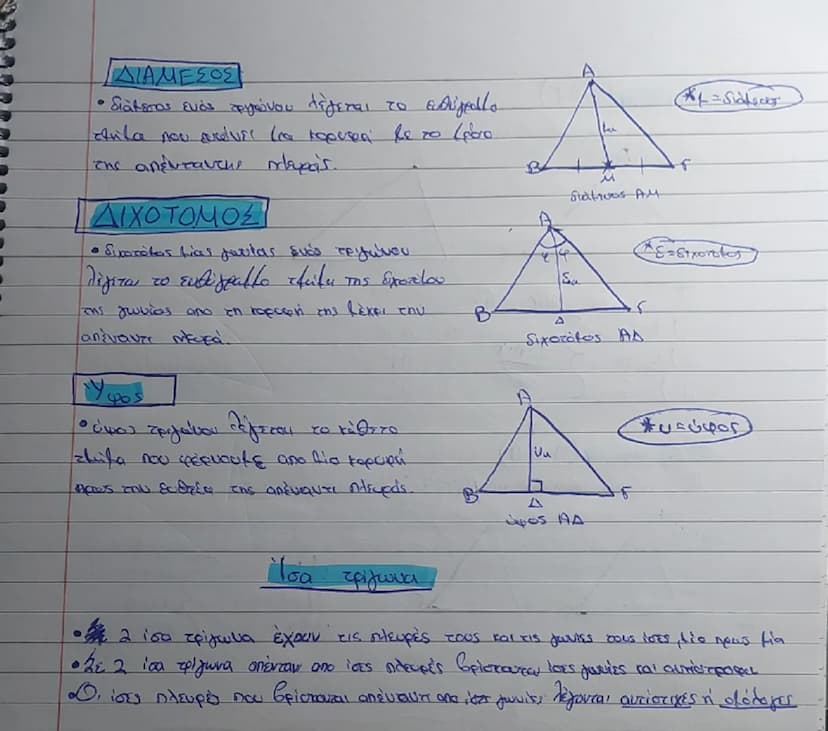 ΔΙΑΜΕΣΟΣ
• διάμεσος ενός τριγώνου λέγεται το ευθύγραμμο
τμήμα που ενώνει μια κορυφή με το μέσο
της απέναντι πλευράς.
Α
Β
Μ
Γ
μα
διάμεσος ΑΜ
*μ=διάμεσος
ΔΙΧΟΤΟΜΟΣ
• διχοτόμος μίας γωνίας ενός τριγώνου
λέγεται το ευθύγραμμο τμήμα της διχοτόμου
της γωνίας από τη κορυφή της μέχρι την
απέναντι πλευρά.
Α
φ φ
δα
Β
Δ
Γ
διχοτόμος ΑΔ
*δ=διχοτόμος
Υψος
• ύψος τριγώνου λέγεται το κάθετο
τμήμα που φέρνουμε απο μία κορυφή
προς την ευθεία της απέναντι πλευράς.
Α
υα
Β
Δ
Γ
ύψος ΑΔ
*υ=ύψος
Ίσα τρίγωνα
• 2 ίσα τρίγωνα έχουν τις πλευρές τους και τις γωνίες τους ίσες, μία προς μία
• Σε 2 ίσα τρίγωνα απέναντι απο ίσες πλευρές βρίσκονται ίσες γωνίες και αντίστροφα
Οι ίσες πλευρές που βρίσκονται απέναντι απο ίσες γωνίες λέγονται αντίστοιχες ή ομόλογες